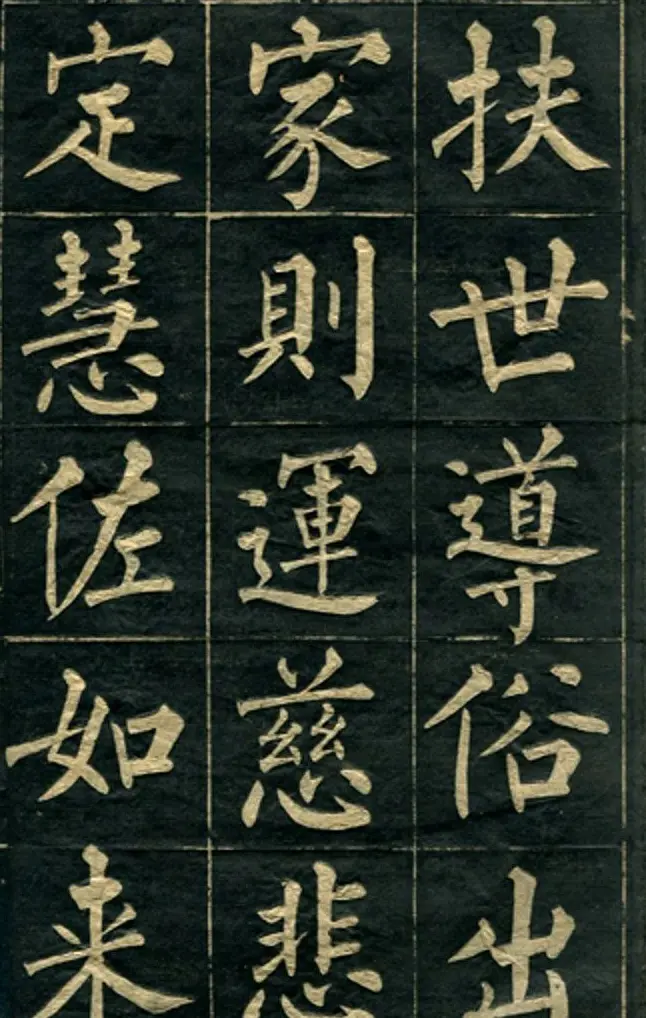 扶世導俗出
家則運慈悲
定慧佐如來